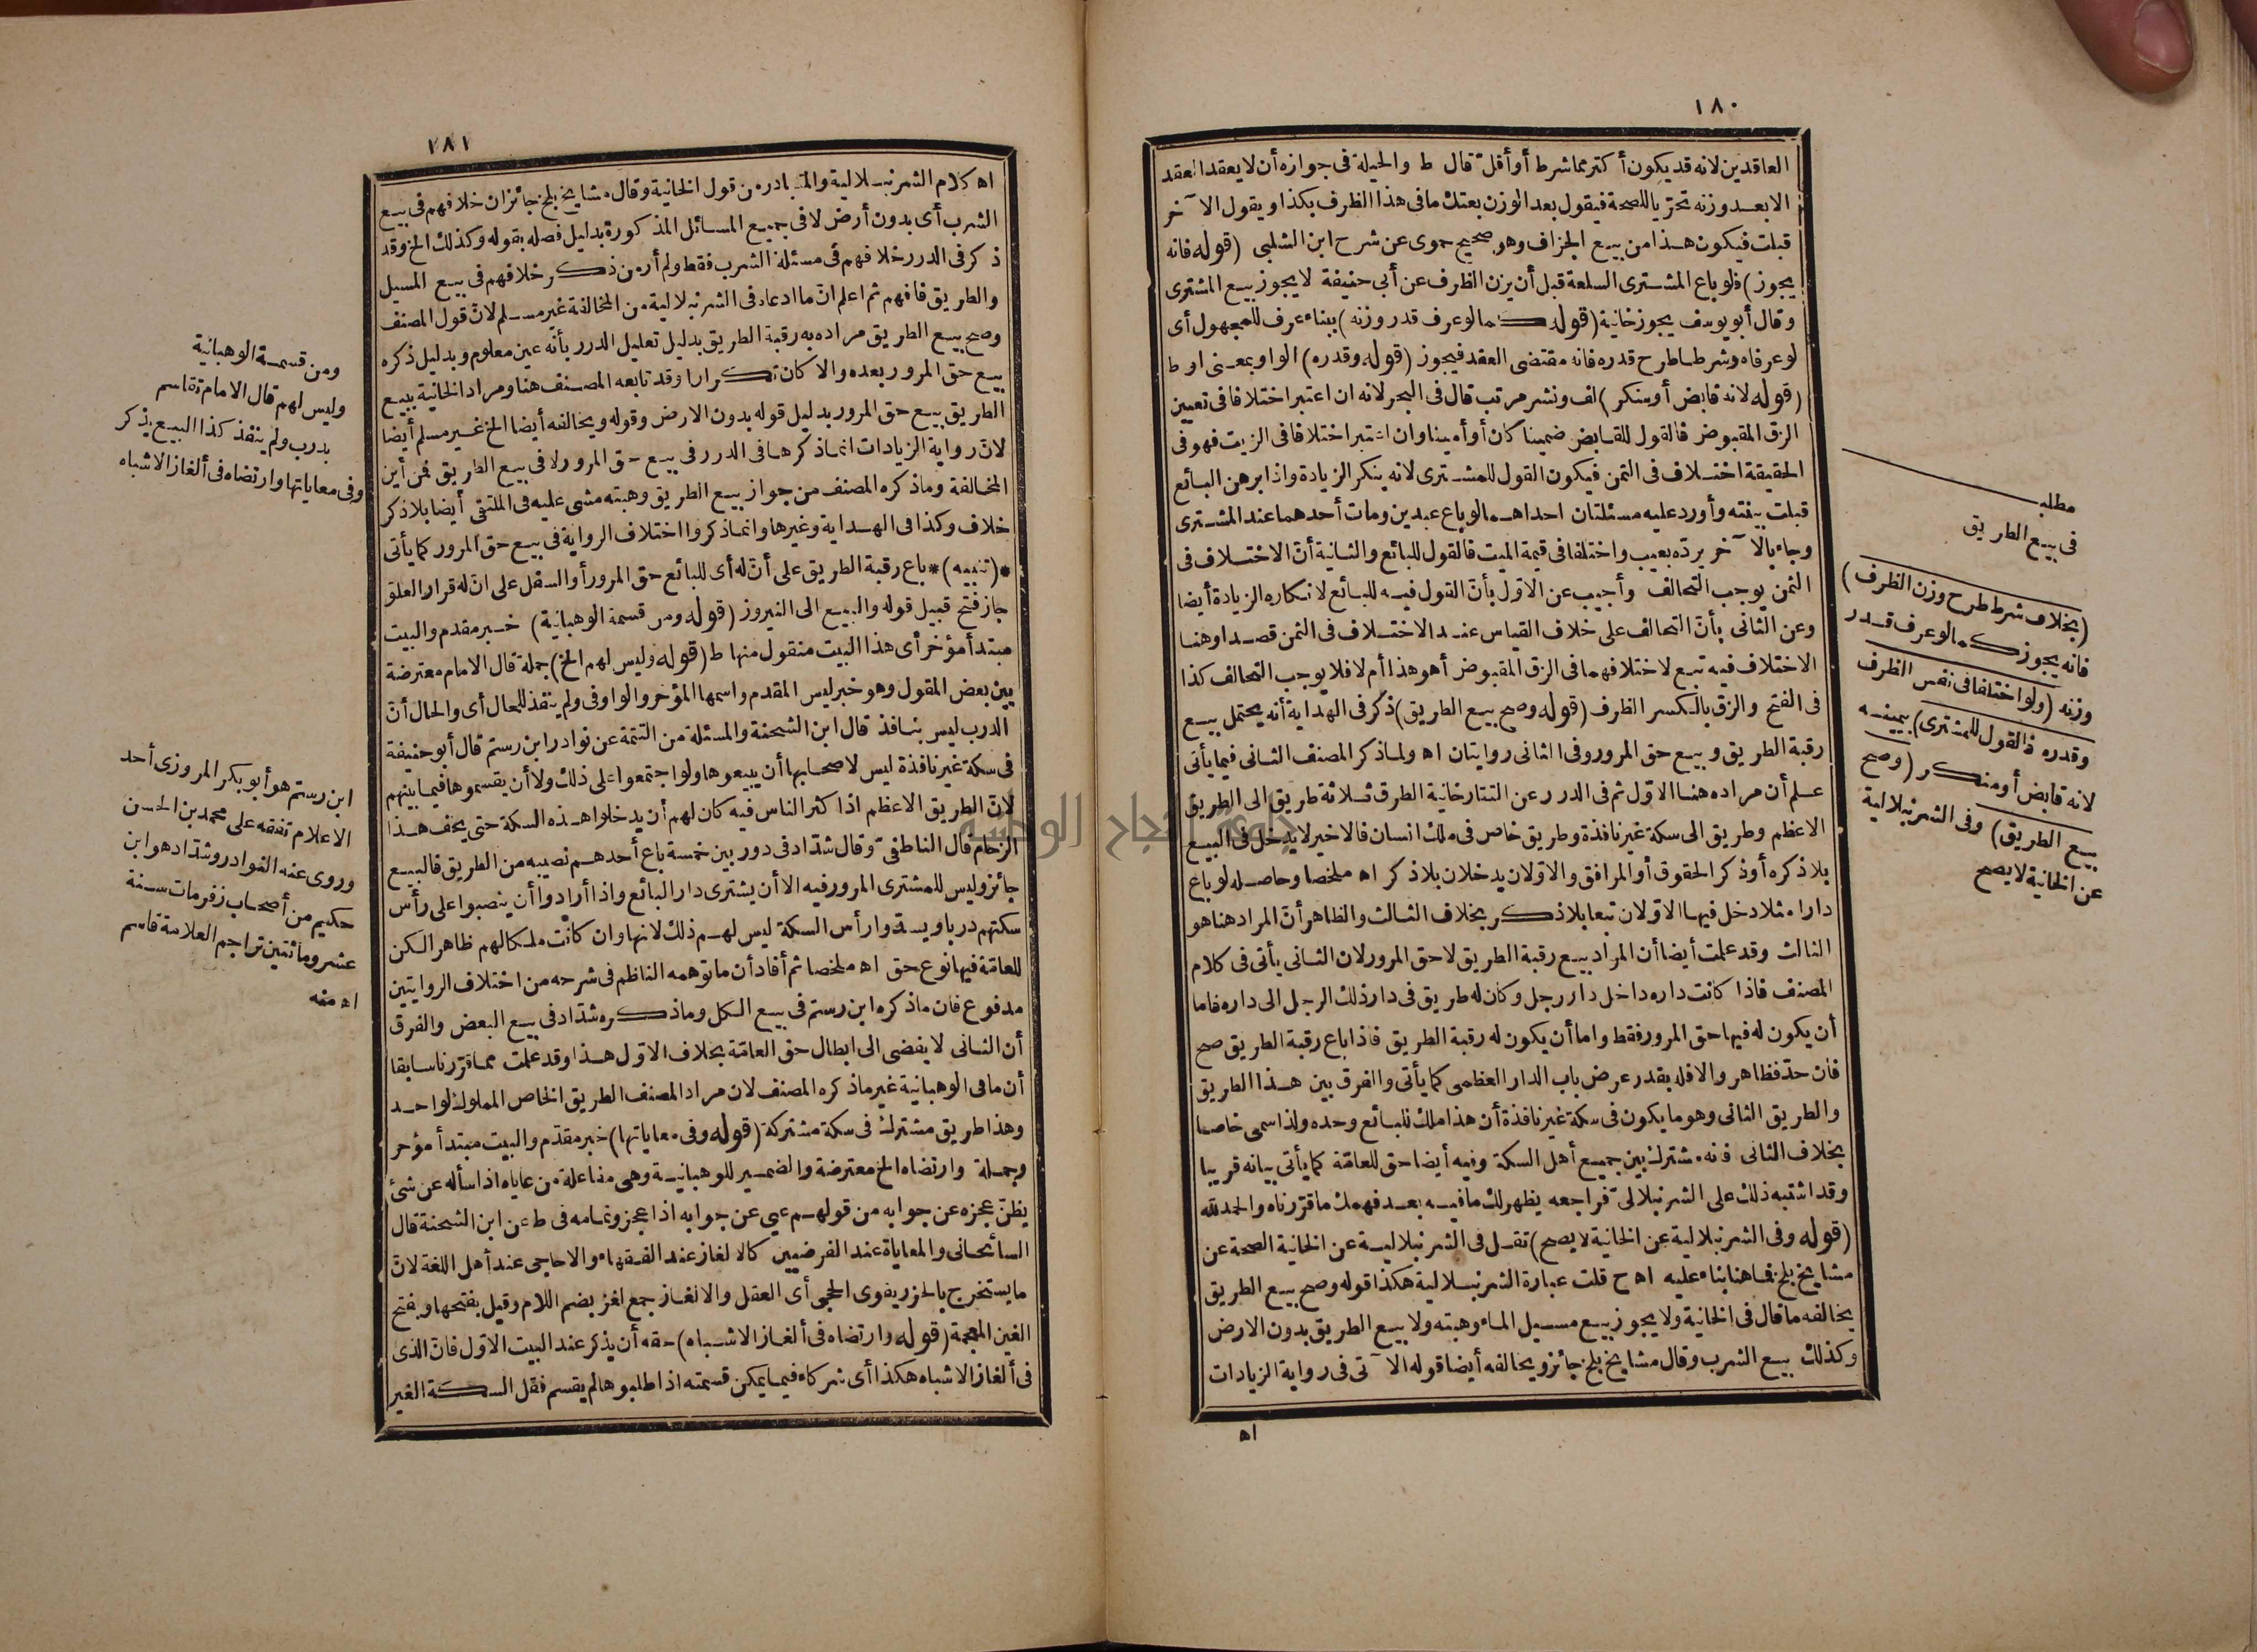 ١٨٠
العاقدين لانه قد يكون أكثر مما شرط أو أقل قال ط والحيلة فى جوازه أن لا يعقد العقد
الا بعد وزنه تحريا للصحة فيقول بعد الوزن بعتك ما فى هذا الظرف بكذا ويقول الآخر
قبلت فيكون هذا من بيع الجزاف وهو صحيح حموى عن شرح ابن الشلبى (قوله فانه
يجوز) فلو باع المشترى السلعة قبل أن يزن الظرف عن أبى حنيفة لا يجوز بيع المشترى
وقال أبو يوسف يجوز خانية (قوله كما لو عرف قدر وزنه) ببناء عرف للمجهول أى
لو عرفاه وشرطا طرح قدره فانه مقتضى العقد فيجوز (قوله وقدره) الواو بمعنى او ط
(قوله لانه قابض أو منكر) لف ونشر مرتب قال فى البحر لانه ان اعتبر اختلافا فى تعيين
الزق المقبوض فالقول للقابض ضمينا كان أو أمينا وان اعتبر اختلافا فى الزيت فهو فى
الحقيقة اختلاف فى الثمن فيكون القول للمشترى لانه ينكر الزيادة واذا برهن البائع
قبلت بينته وأورد عليه مسئلتان احداهما لو باع عبدين ومات أحدهما عند المشترى
وجاء بالآخر يرده بعيب واختلفا فى قيمة الميت فالقول للبائع والثانية أن الاختلاف فى
الثمن يوجب التحالف وأجيب عن الاول بأن القول فيه للبائع لانكاره الزيادة أيضا
وعن الثانى بأن التحالف على خلاف القياس عند الاختلاف فى الثمن قصدا وهنا
الاختلاف فيه تبع لاختلافهما فى الزق المقبوض أهو هذا أم لا فلا يوجب التحالف كذا
فى الفتح والزق بالكسر الظرف (قوله وصح بيع الطريق) ذكر فى الهداية أنه يحتمل بيع
رقبة الطريق وبيع حق المرور وفى الثانى روايتان اه ولما ذكر المصنف الثانى فيما يأتى
علم أن مراده هنا الاول ثم فى الدرر عن التتارخانية الطرق ثلاثة طريق الى الطريق
الاعظم وطريق الى سكة غير نافذة وطريق خاص فى ملك انسان فالاخير لا يدخل فى البيع
بلا ذكره أو ذكر الحقوق أو المرافق والاولان يدخلان بلا ذكر اه ملخصا وحاصله لو باع
دارا مثلا دخل فيها الاولان تبعا بلا ذكر بخلاف الثالث والظاهر أن المراد هنا هو
الثالث وقد علمت أيضا أن المراد بيع رقبة الطريق لا حق المرور لان الثانى يأتى فى كلام
المصنف فاذا كانت داره داخل دار رجل وكان له طريق فى دار ذلك الرجل الى داره فاما
أن يكون له فيها حق المرور فقط واما أن يكون له رقبة الطريق فاذا باع رقبة الطريق صح
فان حد فظاهر والا فله بقدر عرض باب الدار العظمى كما يأتى والفرق بين هذا الطريق
والطريق الثانى وهو ما يكون فى سكة غير نافذة أن هذا ملك للبائع وحده ولذا سمى خاصا
بخلاف الثانى فانه مشترك بين جميع أهل السكة وفيه أيضا حق للعامة كما يأتى بيانه قريبا
وقد اشتبه ذلك على الشرنبلالى فراجعه يظهر لك ما فيه بعد فهمك ما قررناه والحمد لله
(قوله وفى الشرنبلالية عن الخانية لا يصح) نقل فى الشرنبلالية عن الخانية الصحة عن
مشايخ بلخ فما هنا بناء عليه اه ح قلت عبارة الشرنبلالية هكذا قوله وصح بيع الطريق
يخالفه ما قال فى الخانية ولا يجوز بيع مسيل الماء وهبته ولا بيع الطريق بدون الارض
وكذلك بيع الشرب وقال مشايخ بلخ جائز ويخالفه أيضا قوله الآتى فى رواية الزيادات
اه
مطلب
فى بيع الطريق
(بخلاف شرط طرح وزن الظرف)
فانه يجوز كما لو عرف قدر
وزنه (ولو اختلفا فى نفس الظرف
وقدره فالقول للمشترى) بيمينه
لانه قابض أو منكر (وصح
بيع الطريق) وفى الشرنبلالية
عن الخانية لا يصح
١٨١
اه كلام الشرنبلالية والمتبادر من قول الخانية وقال مشايخ بلخ جائز ان خلافهم فى بيع
الشرب أى بدون أرض لا فى جميع المسائل المذكورة بدليل فصله بقوله وكذلك الخ وقد
ذكر فى الدرر خلافهم فى مسئلة الشرب فقط ولم أر من ذكر خلافهم فى بيع المسيل
والطريق فافهم ثم اعلم ان ما ادعاه فى الشرنبلالية من المخالفة غير مسلم لان قول المصنف
وصح بيع الطريق مراده به رقبة الطريق بدليل تعليل الدرر بأنه عين معلوم وبدليل ذكره
بيع حق المرور بعده والا كان تكرارا وقد تابعه المصنف هنا ومراد الخانية ببيع
الطريق بيع حق المرور بدليل قوله بدون الارض وقوله ويخالفه أيضا الخ غير مسلم أيضا
لان رواية الزيادات انما ذكرها فى الدرر فى بيع حق المرور لا فى بيع الطريق فمن أين
المخالفة وما ذكره المصنف من جواز بيع الطريق وهبته مشى عليه فى الملتقى أيضا بلا ذكر
خلاف وكذا فى الهداية وغيرها وانما ذكروا اختلاف الرواية فى بيع حق المرور كما يأتى
*(تنبيه)* باع رقبة الطريق على أن له أى للبائع حق المرور أو السفل على ان له قرار العلو
جاز فتح قبيل قوله والبيع الى النيروز (قوله ومن قسمة الوهبانية) خبر مقدم والبيت
مبتدأ مؤخر أى هذا البيت منقول منها ط (قوله وليس لهم الخ) جملة قال الامام معترضة
بين بعض المقول وهو خبر ليس المقدم واسمها المؤخر والواو فى ولم ينفذ للحال أى والحال أن
الدرب ليس بنافذ قال ابن الشحنة والمسئلة من التتمة عن نوادر ابن رستم قال أبو حنيفة
فى سكة غير نافذة ليس لاصحابها أن يبيعوها ولو اجتمعوا على ذلك ولا أن يقسموها فيما بينهم
لان الطريق الاعظم اذا كثر الناس فيه كان لهم أن يدخلوا هذه السكة حتى يخف هذا
الزحام قال الناطفى وقال شداد فى دور بين خمسة باع أحدهم نصيبه من الطريق فالبيع
جائز وليس للمشترى المرور فيه الا أن يشترى دار البائع واذا أرادوا أن ينصبوا على رأس
سكتهم دربا ويسدوا رأس السكة ليس لهم ذلك لانها وان كانت ملكا لهم ظاهرا لكن
للعامة فيها نوع حق اه ملخصا ثم أفاد أن ما توهمه الناظم فى شرحه من اختلاف الروايتين
مدفوع فان ما ذكره ابن رستم فى بيع الكل وما ذكره شداد فى بيع البعض والفرق
أن الثانى لا يفضى الى ابطال حق العامة بخلاف الاول هذا وقد علمت مما قررنا سابقا
أن ما فى الوهبانية غير ما ذكره المصنف لان مراد المصنف الطريق الخاص المملوك لواحد
وهذا طريق مشترك فى سكة مشتركة (قوله وفى معاياتها) خبر مقدم والبيت مبتدأ مؤخر
وجملة وارتضاه الخ معترضة والضمير للوهبانية وهى مفاعلة من عاياه اذا سأله عن شئ
يظن عجزه عن جوابه من قولهم عيى عن جوابه اذا عجز وتمامه فى ط عن ابن الشحنة قال
السائحانى والمعاياة عند الفرضيين كالالغاز عند الفقهاء والاحاجى عند أهل اللغة لان
ما يستخرج بالحزر يقوى الحجى أى العقل والالغاز جمع لغز بضم اللام وقيل بفتحها وبفتح
الغين المعجمة (قوله وارتضاه فى ألغاز الاشباه) حقه أن يذكر عند البيت الاول فان الذى
فى ألغاز الاشباه هكذا أى شركاء فيما يمكن قسمته اذا طلبوها لم يقسم فقل السكة الغير
ومن قسمة الوهبانية
وليس لهم قال الامام تقاسم
بدرب ولم ينفذ كذا البيع يذكر
وفى معاياتها وارتضاه فى ألغاز الاشباه
ابن رستم هو أبو بكر المروزى أحد
الاعلام تفقه على محمد بن الحسن
وروى عنه النوادر وشداد هو ابن
حكيم من أصحاب زفر مات سنة
عشر ومائتين تراجم العلامة قاسم
اه منه